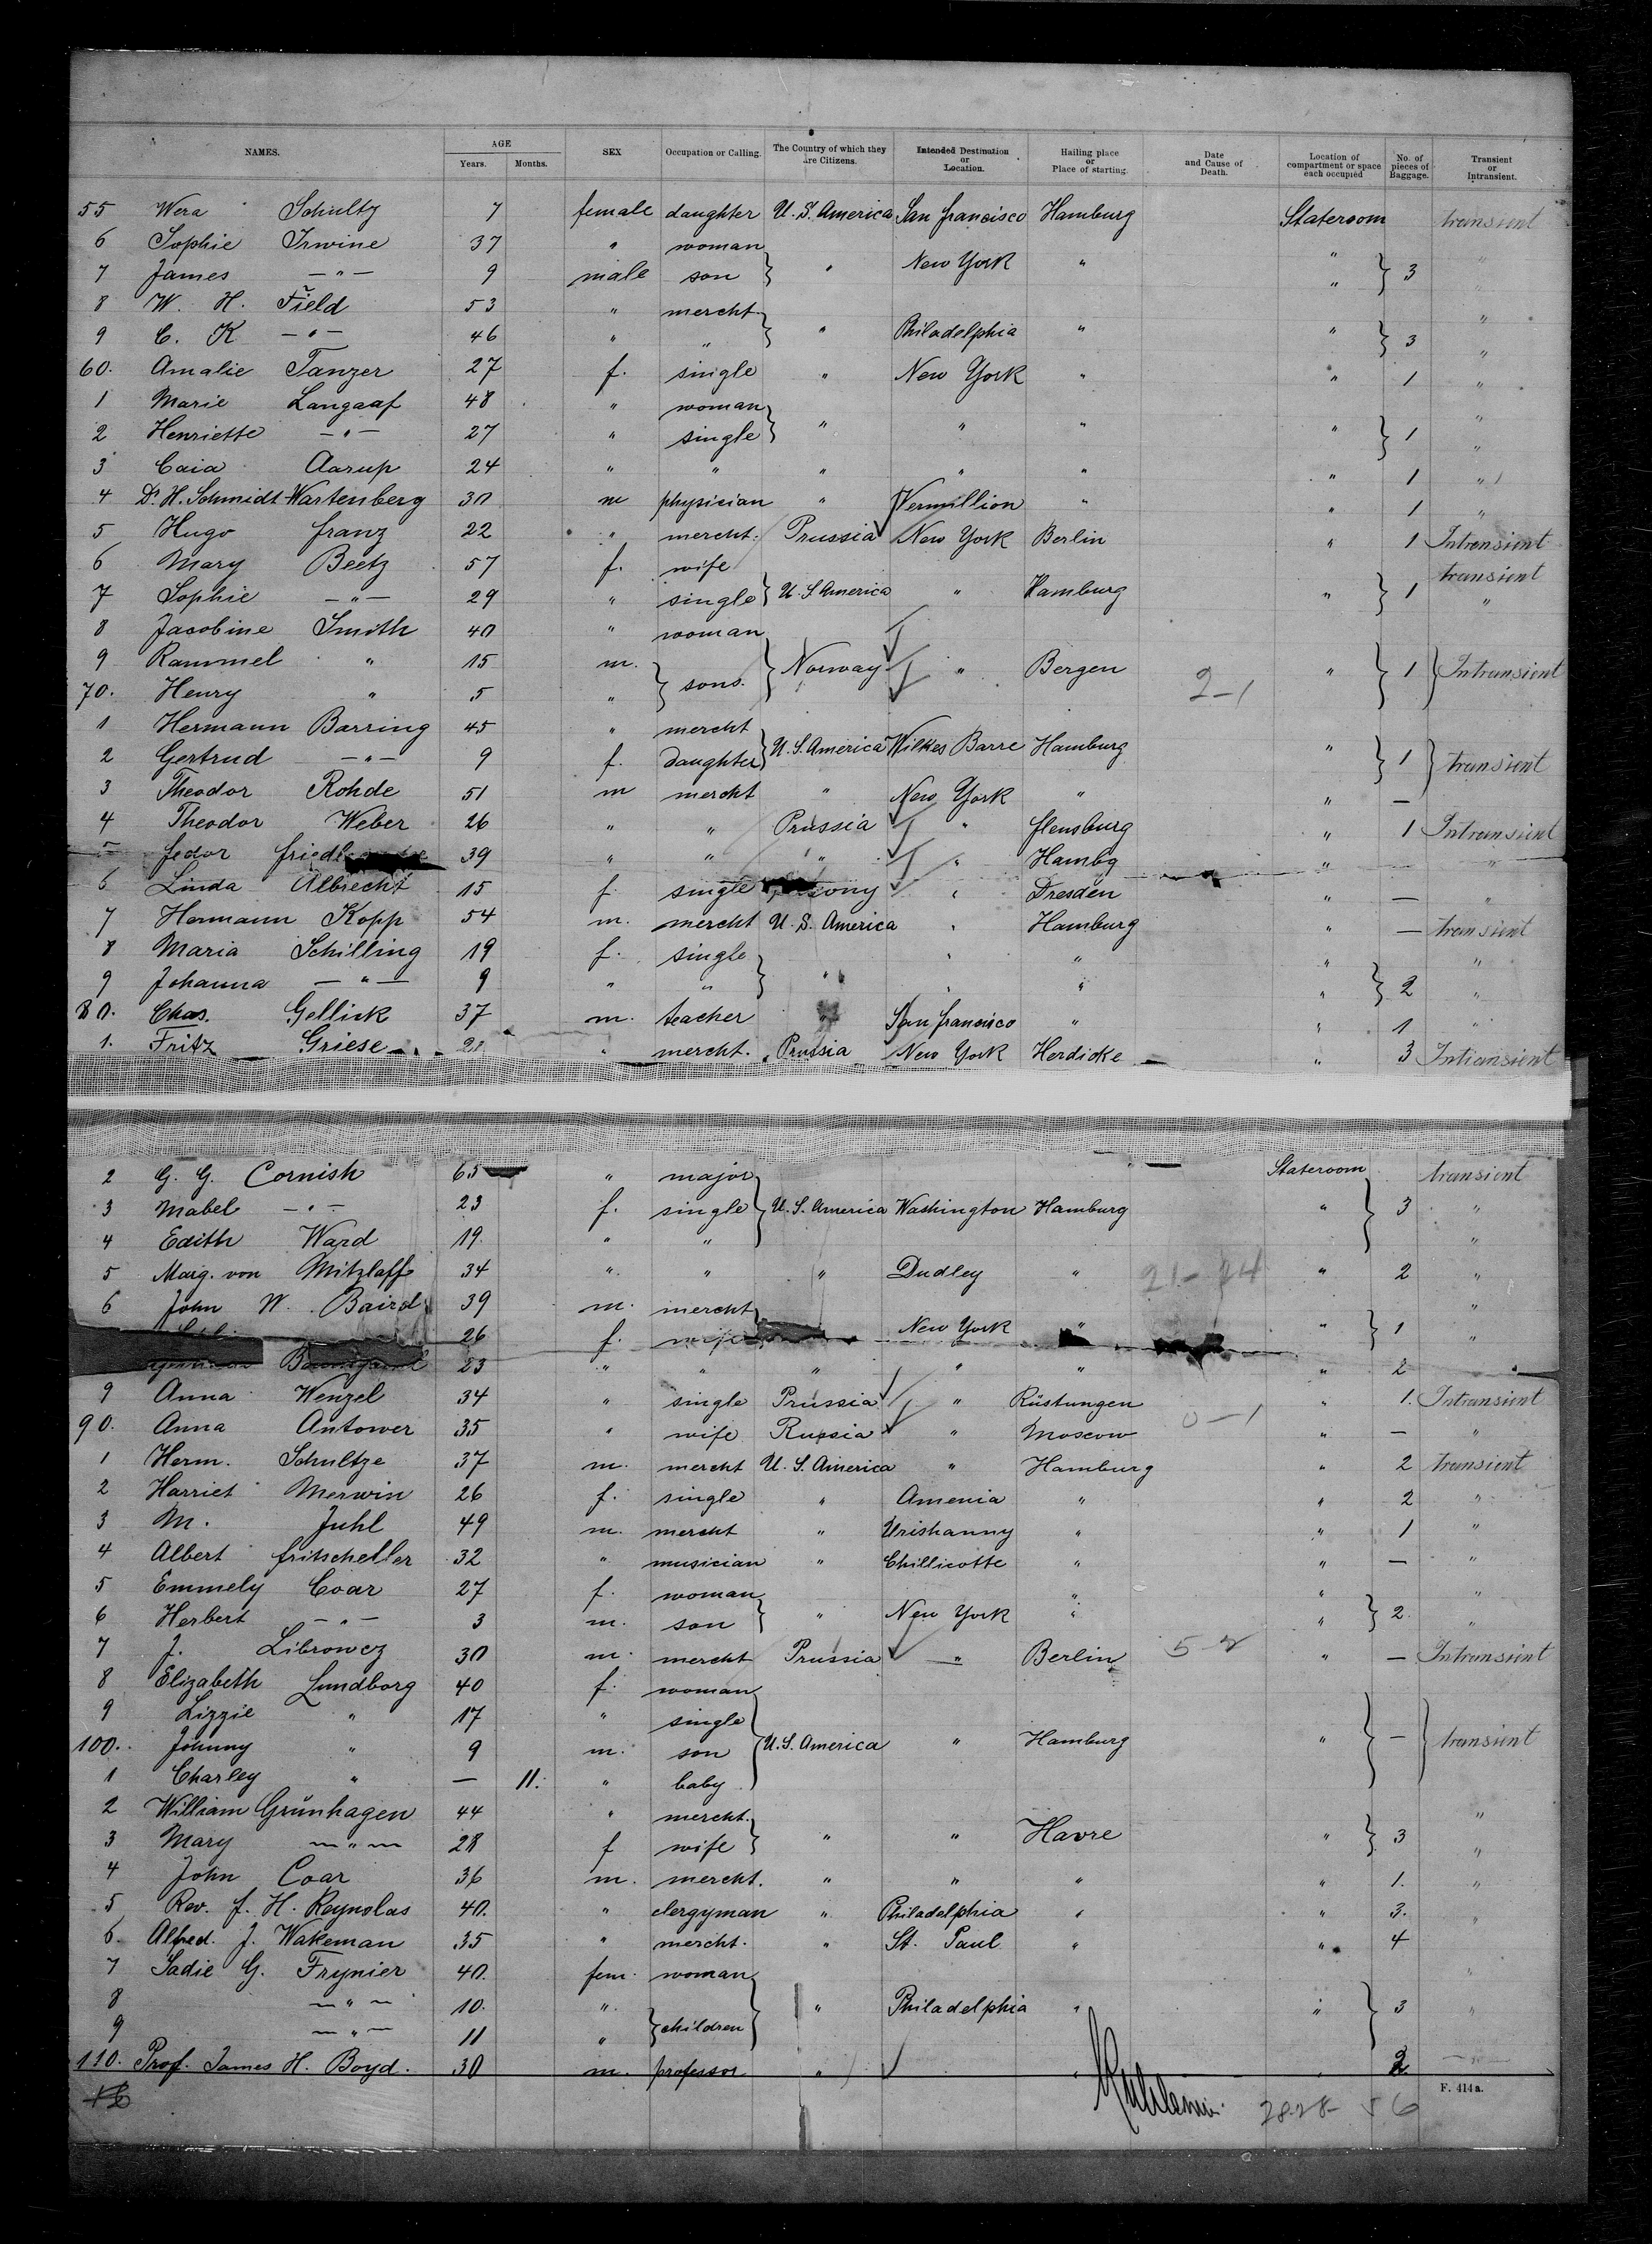 NAMES. AGE Years. Months. SEX Occupation or Calling. The Country of which they are Citizens. Intended Destination or Location. Hailing place or Place of starting. Date and Cause of Death. Location of compartment or space each occupied No. of pieces of Baggage. Transient or Intransient.
55 Wera Schultz 7 female daughter U.S. America San francisco Hamburg Stateroom transient
6 Sophie Irwine 37 " woman " "
7 James —"— 9 male son } " New York " " } 3 "
8 W. H. Field 53 " mercht. "
9 C. K —"— 46 " " } " Philadelphia " " } 3 "
60. Amalie Tanzer 27 f. single " New York " " 1 "
1 Marie Langaaf 48 " woman "
2 Henriette —"— 27 " single } " " " " } 1 "
3 Caia Aarup 24 " " " " " " 1 "
4 Dr. H. Schmidt-Wartenberg 30 m physician " Vermillion " " 1 "
5 Hugo franz 22 " mercht. Prussia New York Berlin " 1 Intransient
6 Mary Beetz 57 f. wife transient
7 Sophie —"— 29 " single } U. S America " Hamburg " } 1 "
8 Jacobine Smith 40 " woman
9 Rammel " 15 m. } sons. } Norway " Bergen " } 1 } Intransient
70. Henry " 5 " 2-1
1 Hermann Barring 45 " mercht
2 Gertrud —"— 9 f. daughter } U. S. America Wilkes Barre Hamburg " } 1 } transient
3 Theodor Rohde 51 m mercht " New York " " —
4 Theodor Weber 26 " " Prussia " flensburg " 1 Intransient
5 fedor 39 " " " " Hambg " — "
6 Linda Albrecht 15 f. single " Dresden " — "
7 Hermann Kopp 54 m. mercht U. S. America " Hamburg " — transient
8 Maria Schilling 19 f. single " " " "
9 Johanna —"— 9 " " } " " " " } 2 "
80. Chas. Gellick 37 m. teacher " San francisco " " 1 "
1. Fritz Griese " mercht. Prussia New York Herdicke " 3 Intransient
2 G. G. Cornish 65 " major Stateroom transient
3 Mabel —"— 23 f. single } U. S. America Washington Hamburg " } 3 "
4 Edith Ward 19 " " "
5 Marg. von Mitzlaff 34 " " " Dudley " " 2 "
6 John W. Baird 39 m. mercht "
26 f. wife New York " " } 1 "
23 " " " " " " 2 "
9 Anna Wenzel 34 " single Prussia " Rüstungen " 1. Intransient
90. Anna Antower 35 " wife Russia " Moscow 0-1 " — "
1 Herm. Schultze 37 m. mercht U. S. America " Hamburg " 2 transient
2 Harriet Merwin 26 f. single " Amenia " " 2 "
3 M. Juhl 49 m. mercht " Urishanny " " 1 "
4 Albert fritscheller 32 " musician " Chillicotte " " — "
5 Emmely Coar 27 f. woman " " "
6 Herbert —"— 3 m. son } " New York " " } 2. "
7 J. Librowcz 30 m. mercht Prussia " Berlin " — Intransient
8 Elizabeth Lundborg 40 f. woman
9 Lizzie " 17 " single
100. Johnny " 9 m. son } U.S. America " Hamburg " } — } transient
1 Charley " — 11. " baby
2 William Grünhagen 44 " mercht. "
3 Mary —"— 28 f wife } " " Havre " } 3 "
4 John Coar 36 m. mercht. " " " " 1. "
5 Rev. f. H. Reynolas 40. " clergyman " Philadelphia " " 3. "
6. Alfred. J. Wakeman 35 " mercht. " St. Paul " " 4
7 Sadie G. Frynier 40. fem. woman "
8 —"— 10. " } children } " Philadelphia " " } 3 "
9 —"— 11 "
110. Prof. James H. Boyd. 30 m. professor " " " 2.
F. 414a.